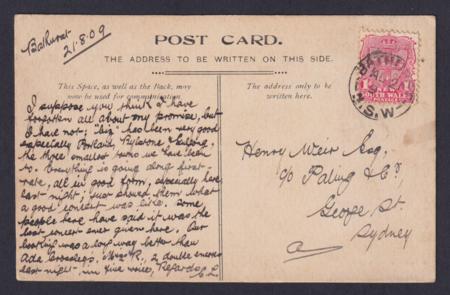 Bathurst
21.8.09
POST CARD.
THE ADDRESS TO BE WRITTEN ON THIS SIDE.
This Space, as well as the Back, may
now be used for communication.
The address only to be
written here.
I suppose you think I have
forgotten all about my promise, but
I have not; "biz" has been very good
especially Portland, Rylstone & Gulgong,
the three smallest towns we have been
to. Everything is going along first
rate, all in good form, especially here
last night; just showed them what
a good concert was like. Some
people here have said it was the
best concert ever given here. Our
booking was a long way better than
Ada Crossleys. 2 double encores
last night in fine voice, Regards
Henry Weir Esq.
c/o Paling & Co,
George St.
Sydney
BATHURST
AU
N.S.W
SOUTH WALES